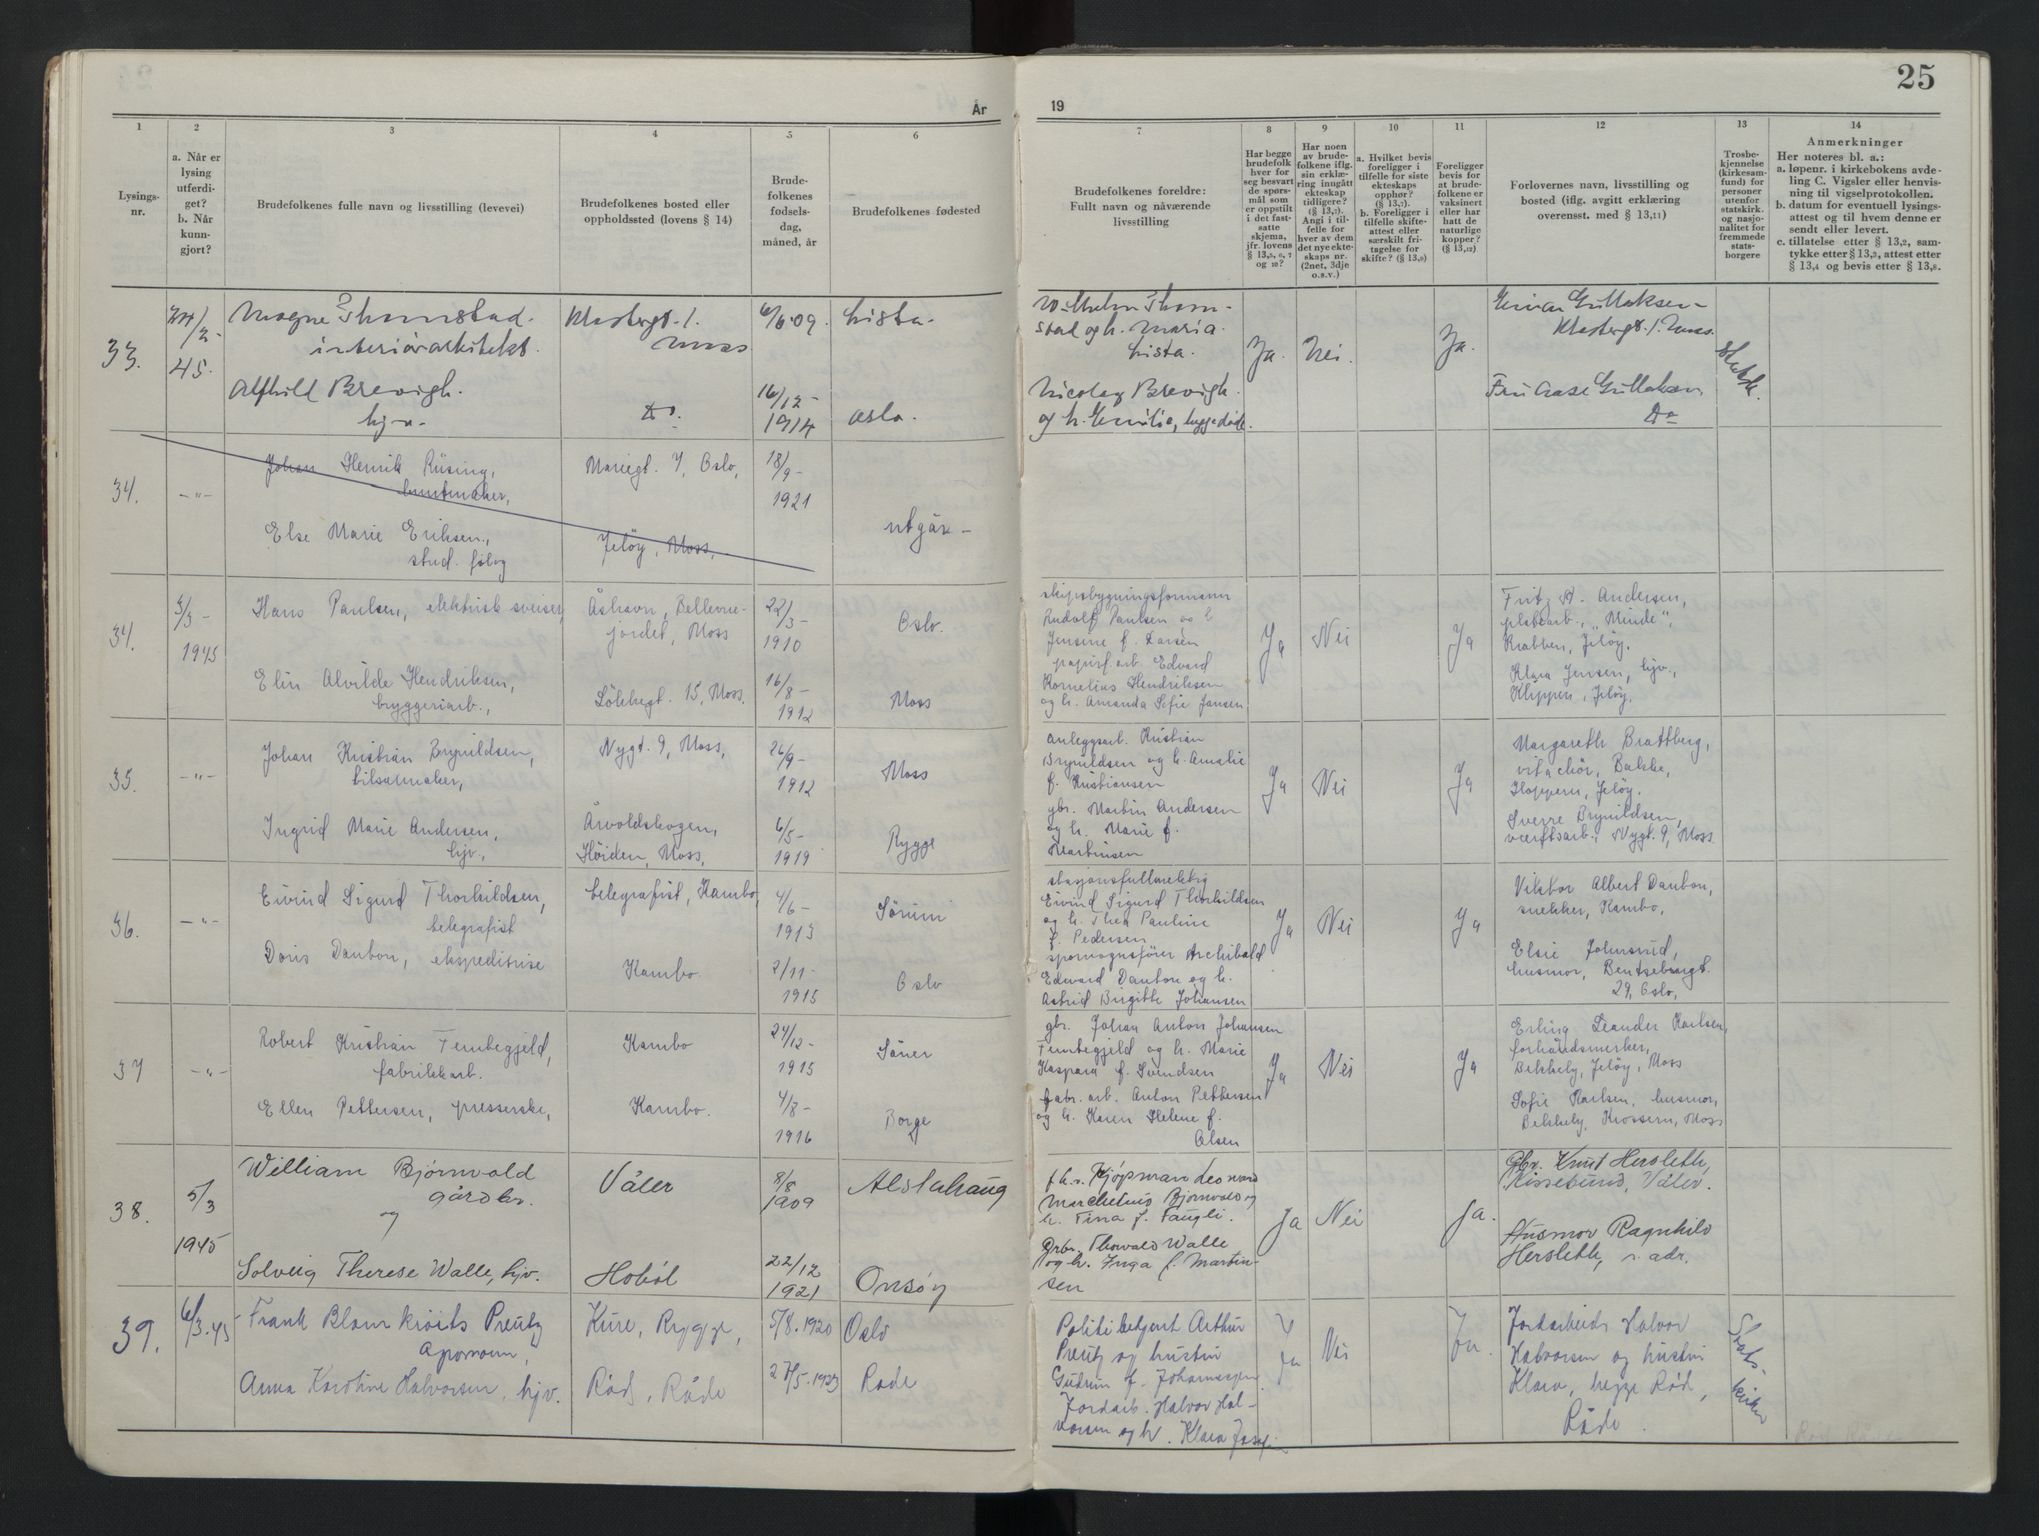 25
År
19
1
2
3
4
5
6
7
8
9
10
11
12
13
14
Lysings-
nr.
a. Når er
lysing
utferdi-
get?
b. Når
kunn-
gjort?
Brudefolkenes fulle navn og livsstilling (levevei)
Brudefolkenes bosted eller
oppholdssted (lovens § 14)
Brude-
folkenes
fødsels-
dag,
måned, år
Brudefolkenes fødested
Brudefolkenes foreldre:
Fullt navn og nåværende
livsstilling
Har begge
brudefolk
hver for
seg besvart
de spørs-
mål som
er oppstilt
i det fast-
satte
skjema,
jfr. lovens
§ 13,5, 6, 7
og 10?
Har noen
av brude-
folkene iflg.
sin erklæ-
ring inngått
ekteskap
tidligere?
(§ 13,7).
Angi i til-
felle for
hver av dem
det nye ekte-
skaps nr.
(2net, 3dje
o.s.v.)
a. Hvilket bevis
foreligger i
tilfelle for siste
ekteskaps
opphør?
(§ 13,7).
b. Foreligger i
tilfelle skifte-
attest eller
særskilt fri-
tagelse for
skifte? (§ 13,9)
Foreligger
bevis for
at brude-
folkene er
vaksinert
eller har
hatt de
naturlige
kopper?
(§ 13,12)
Forlovernes navn, livsstilling og
bosted (iflg. avgitt erklæring
overensst. med § 13,11)
Trosbe-
kjennelse
(kirkesam-
fund) for
personer
utenfor
statskirk.
og nasjo-
nalitet for
fremmede
stats-
borgere
Anmerkninger
Her noteres bl. a.:
a. løpenr. i kirkebokens avde-
ling C. Vigsler eller henvis-
ning til vigselprotokollen.
b. datum for eventuell lysings-
attest og til hvem denne er
sendt eller levert.
c. tillatelse etter § 13,2, sam-
tykke etter § 13,3, attest etter
§ 13,4 og bevis etter § 13,8.
33.
45.
Magne Thomstad.
interiørarkitekt.
Alfhild Brevigh.
hjv.
Moss
Do.
6/6.09.
16/12-
1914
Lista.
Oslo.
Wilhelm Thom-
stad og h. Maria.
Lista.
Nicolay Brevigh
og h. Emilie, begge døde.
Ja.
Nei.
Ja.
Einar Gulliksen
Moss.
Fru Aase Gulliksen
Do
34.
-"-
Johan Henrik Rüsing,
buntmaker,
Else Marie Eriksen,
stud. filog
Mariegt. 7, Oslo,
Jeløy, Moss,
18/9-
1921
utgår -
34.
3/3-
1945
Hans Paulsen, elektrisk sveiser,
Elin Alvilde Hendriksen,
bryggeriarb.,
Åshavn, Bellevue-
jordet, Moss
15, Moss.
22/3-
1910
16/8-
1912
Oslo.
Moss
skipsbygningsformann
Rudolf Paulsen og h
Jensine f. Larsen
papirf.arb. Edvard
Kornelius Hendriksen
og h. Amanda Sofie Jansen
Ja
Nei
Ja
Fritz A. Andersen,
platearb., "Minde",
Krabben, Jeløy.
Klara Jensen, hjv.,
Klippen, Jeløy.
35.
-"-
Johan Kristian Brynildsen,
Ingrid Marie Andersen,
hjv.,
Nygt. 9, Moss,
Årvoldskogen,
Høiden, Moss,
26/9-
1912
6/5-
1919
Moss
Rygge
anleggsarb. Kristian
Brynildsen og h. Amalie
f. Kristiansen
gbr. Martin Andersen
og h. Marie f.
Martinsen
Ja
Nei
Ja
Margareth Brattberg,
Bakke,
Jeløy.
Sverre Brynildsen,
verftsarb. Nygt. 9, Moss
36.
-"-
Eivind Sigurd Thorkildsen,
telegrafist
Doris Danbon, ekspeditrise
telegrafist, Kambo,
Kambo
4/6-
1913
2/11-
1915
Sørum
Oslo
stasjonsfullmektig
Eivind Sigurd Thorkildsen
og h. Thea Pauline
f. Pedersen
sporvognsfører Archibald
Edward Danbon og h.
Astrid Birgitte Johansen
Ja
Nei
Ja
Viktor Albert Danbon,
snekker, Kambo,
Elsie Johnsrud,
husmor, Bentsebrugt.
29, Oslo,
37
-"-
Robert Kristian Tembegjeld,
fabrikkarb.
Ellen Pettersen, presserske,
Kambo
Kambo.
24/12-
1915
4/8-
1916
Såner
Borge
gbr. Johan Anton Johansen
Tembegjeld og h. Marie
Kaspara f. Svendsen
fabr. arb. Anton Pettersen
og h. Karen Helene f.
Olsen
Ja
Nei
Ja
Erling Leander Karlsen,
forhåndsmerker,
Bekkely, Jeløy, Moss
Sofie Karlsen, husmor,
Bekkely, Krossern, Moss
38.
5/3
1945
William Bjørnvold
gårdbr.
og
Solveig Therese Walle, hjv.
Våler
Hobøl
8/8
1909
22/12
1921
Alstahaug
Onsøy
f.h.v. Kjøpmann Leonard
Marchelius Bjørnvold og
h. Tina f. Faugli.
Grbr. Thorvald Walle
og h. Inga f. Martin-
sen
Ja
Nei
Ja.
Gbr. Knut Hersleth,
Kissesund, Våler.
Husmor Ragnhild
Hersleth, s. adr.
39.
6/3.45
Frank Preutz
Anna Karoline Halvorsen, hjv.
Kure, Rygge,
Rød, Råde
5/8.1920
27/5.1923
Oslo
Råde
Politibetjent Arthur
Preutz og hustru
Gudrun f. Johannesen
Jordarb. Halvor Hal-
vorsen og h. Klara
Ja
Nei
Ja.
Jordarbeider Halvor
Halvorsen og hustru
Klara, begge Rød,
Råde
Stats-
kirken